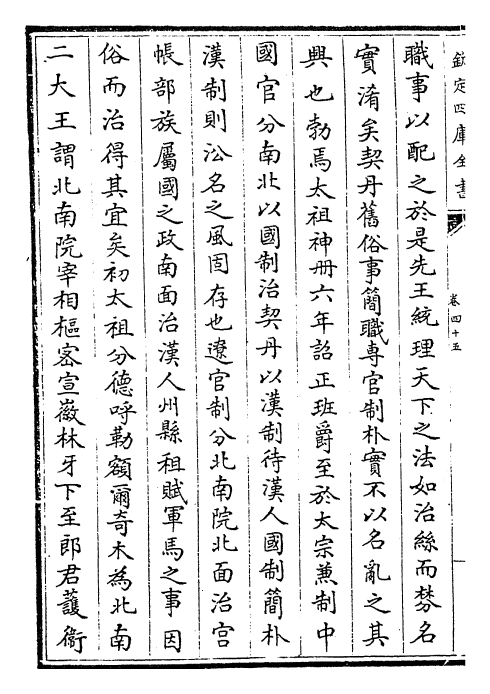 欽定四庫全書
卷四十五
職事以配之於是先王統理天下之法如治絲而棼名
實淆矣契丹舊俗事簡職專官制朴實不以名亂之其
興也勃焉太祖神冊六年詔正班爵至於太宗兼制中
國官分南北以國制治契丹以漢制待漢人國制簡朴
漢制則沿名之風固存也遼官制分北南院北面治宫
帳部族屬國之政南面治漢人州縣租賦軍馬之事因
俗而治得其宜矣初太祖分德呼勒額爾奇木為北南
二大王謂北南院宰相樞密宣徽林牙下至郎君護衛